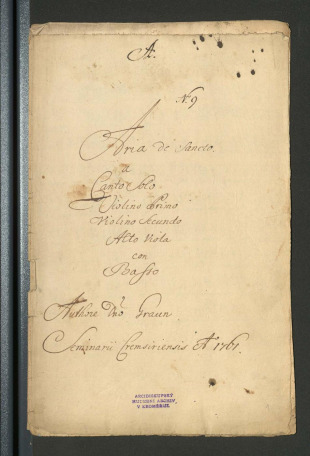 A.
N. 9
Aria de Sancto.
a
Canto Solo
Violino Primo
Violino Secundo
Alto Viola
con
Basso
Authore Dno Graun
Seminarii Cremsiriensis A 1761.
ARCIBISKUPSKÝ
HUDEBNÍ ARCHIV
V KROMĚŘÍŽI.